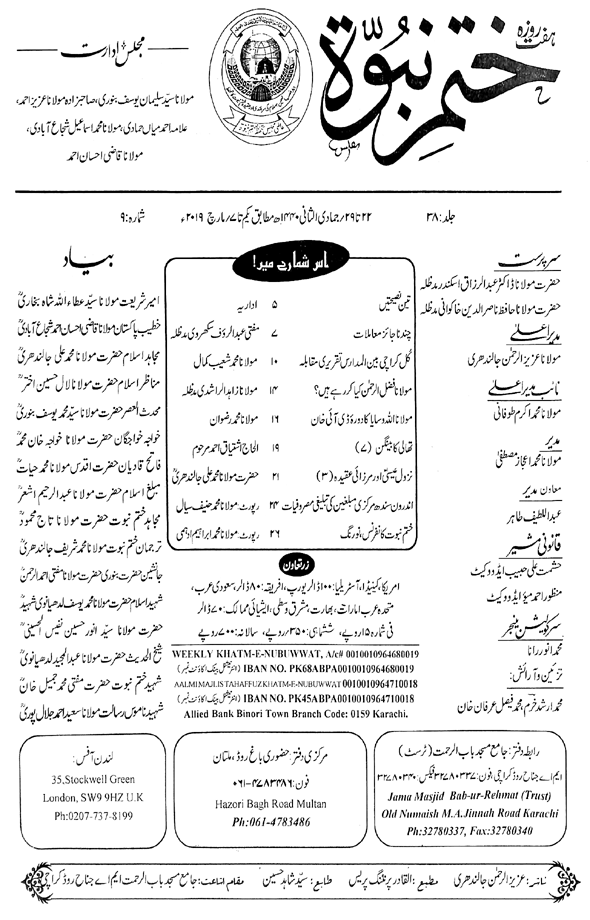 ہفت روزہ
ختم نبوۃ
مجلس ادارت
مولانا سیّد سلیمان یوسف بنوری، صاحبزادہ مولانا عزیز احمد،
علامہ احمد میاں حمادی، مولانا محمد اسماعیل شجاع آبادی،
مولانا قاضی احسان احمد
جلد: ۳۸
۲۲ تا ۲۹؍ جمادی الثانی ۱۴۴۰ھ مطابق یکم تا ۷؍ مارچ ۲۰۱۹ء
شمارہ: ۹
سرپرست
حضرت مولانا ڈاکٹر عبدالرزاق اسکندر مدظلہ
حضرت مولانا حافظ ناصر الدین خاکوانی مدظلہ
مدیر اعلیٰ
مولانا عزیز الرحمٰن جالندھری
نائب مدیر اعلیٰ
مولانا محمد اکرم طوفانی
مدیر
مولانا محمد اعجاز مصطفیٰ
معاون مدیر
عبداللطیف طاہر
قانونی مشیر
حشمت علی حبیب ایڈووکیٹ
منظور احمد میؤ ایڈووکیٹ
سرکولیشن منیجر
محمد انور رانا
تزئین و آرائش:
محمد ارشد خرم، محمد فیصل عرفان خان
اس شمارے میں!
تین نصیحتیں ۵ اداریہ
چند ناجائز معاملات ۷ مفتی عبدالرؤف سکھروی مدظلہ
کل کراچی بین المدارس تقریری مقابلہ ۱۰ مولانا محمد شعیب کمال
مولانا فضل الرحمٰن کیا کررہے ہیں؟ ۱۴ مولانا زاہد الراشدی مدظلہ
مولانا اللہ وسایا کا دورۂ ڈی آئی خان ۱۶ مولانا محمد رضوان
تھالی کا بینگن (۷) ۱۹ الحاج اشتیاق احمد مرحوم
نزول عیسیٰؑ اور مرزائی عقیدہ (۳) ۲۱ حضرت مولانا محمد علی جالندھریؒ
اندرون سندھ مرکزی مبلغین کی تبلیغی مصروفیات ۲۴ رپورٹ: مولانا محمد حنیف سیال
ختم نبوت کانفرنس، نورنگ ۲۶ رپورٹ: مولانا محمد ابراہیم ادہمی
زرتعاون
امریکا، کینیڈا، آسٹریلیا: ۱۰۰ ڈالر یورپ، افریقہ: ۸۰ ڈالر، سعودی عرب،
متحدہ عرب امارات، بھارت، مشرق وسطیٰ، ایشیائی ممالک: ۷۰ ڈالر
فی شمارہ ۱۵ روپے، ششماہی: ۳۵۰ روپے، سالانہ: ۷۰۰ روپے
WEEKLY KHATM-E-NUBUWWAT, A/c# 0010010964680019
IBAN NO. PK68ABPA0010010964680019 (انٹرنیشنل بینک اکاؤنٹ نمبر)
AALMI MAJLIS TAHAFFUZ KHATM-E-NUBUWWAT 0010010964710018
IBAN NO. PK45ABPA0010010964710018 (انٹرنیشنل بینک اکاؤنٹ نمبر)
Allied Bank Binori Town Branch Code: 0159 Karachi.
بیاد
امیر شریعت مولانا سیّد عطاء اللہ شاہ بخاریؒ
خطیب پاکستان مولانا قاضی احسان احمد شجاع آبادیؒ
مجاہد اسلام حضرت مولانا محمد علی جالندھریؒ
مناظر اسلام حضرت مولانا لال حسین اخترؒ
محدث العصر حضرت مولانا سیّد محمد یوسف بنوریؒ
خواجہ خواجگان حضرت مولانا خواجہ خان محمدؒ
فاتح قادیان حضرت اقدس مولانا محمد حیاتؒ
مبلغ اسلام حضرت مولانا عبدالرحیم اشعرؒ
مجاہد ختم نبوت حضرت مولانا تاج محمودؒ
ترجمان ختم نبوت حضرت مولانا محمد شریف جالندھریؒ
جانشین حضرت بنوری حضرت مولانا مفتی احمد الرحمٰنؒ
شہید اسلام حضرت مولانا محمد یوسف لدھیانوی شہیدؒ
حضرت مولانا سیّد انور حسین نفیس الحسینیؒ
شیخ الحدیث حضرت مولانا عبدالمجید لدھیانویؒ
شہید ختم نبوت حضرت مفتی محمد جمیل خانؒ
شہید ناموس رسالت مولانا سعید احمد جلال پوریؒ
رابطہ دفتر: جامع مسجد باب الرحمت (ٹرسٹ)
ایم اے جناح روڈ کراچی، فون: ۳۲۷۸۰۳۳۷ فیکس: ۳۲۷۸۰۳۴۰
Jama Masjid Bab-ur-Rehmat (Trust)
Old Numaish M.A.Jinnah Road Karachi
Ph:32780337, Fax:32780340
مرکزی دفتر: حضوری باغ روڈ، ملتان
فون: ۰۶۱-۴۷۸۳۴۸۶
Hazori Bagh Road Multan
Ph:061-4783486
لندن آفس:
35,Stockwell Green
London, SW9 9HZ U.K
Ph:0207-737-8199
ناشر: عزیز الرحمٰن جالندھری مطبع: القادر پرنٹنگ پریس طابع: سیّد شاہد حسین مقام اشاعت: جامع مسجد باب الرحمت ایم اے جناح روڈ کراچی